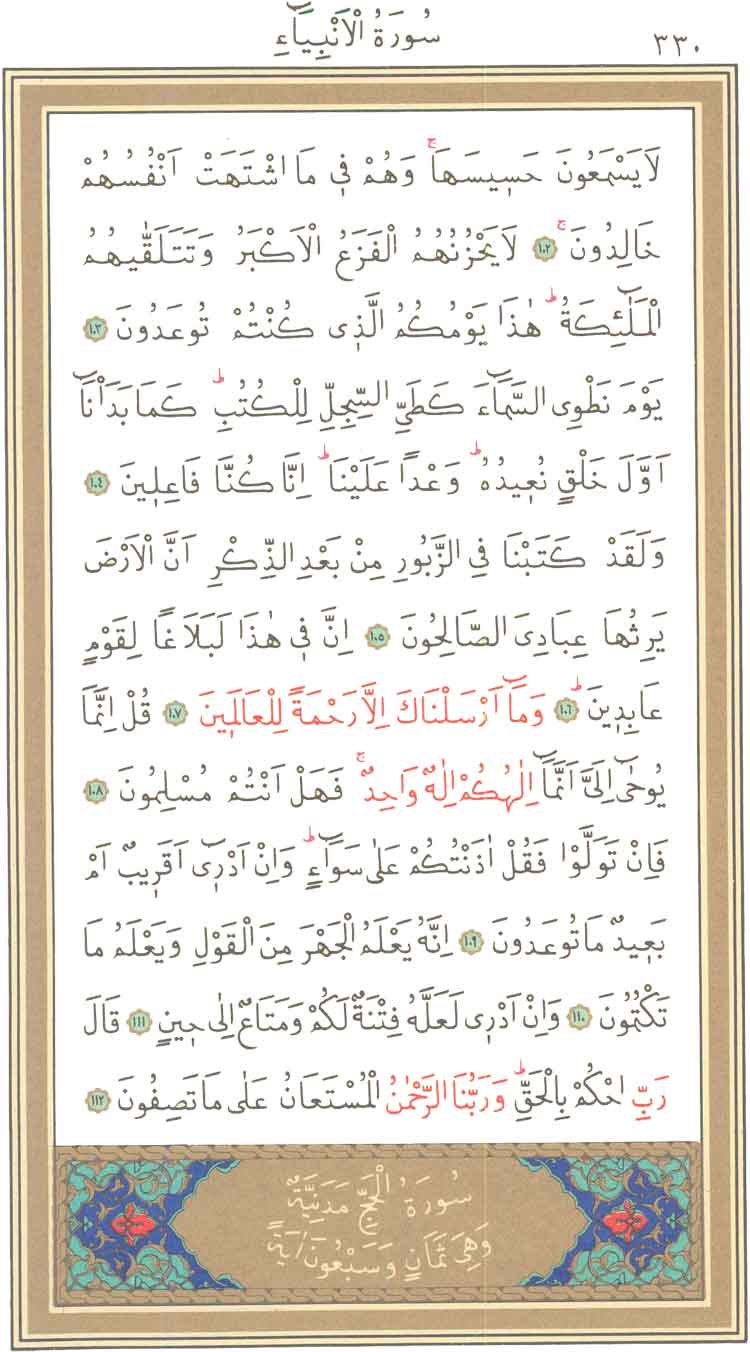 ٣٣٠ سُورَةُ الْاَنْبِيَٓاءِ
لَا يَسْمَعُونَ حَسٖيسَهَاۚ وَهُمْ فٖي مَا اشْتَهَتْ اَنْفُسُهُمْ
خَالِدُونَۚ ﴿١٠٢﴾ لَا يَحْزُنُهُمُ الْفَزَعُ الْاَكْبَرُ وَتَتَلَقّٰيهُمُ
الْمَلٰٓئِكَةُؕ هٰذَا يَوْمُكُمُ الَّذٖي كُنْتُمْ تُوعَدُونَ ﴿١٠٣﴾
يَوْمَ نَطْوِي السَّمَٓاءَ كَطَيِّ السِّجِلِّ لِلْكُتُبِؕ كَمَا بَدَأْنَٓا
اَوَّلَ خَلْقٍ نُعٖيدُهُؕ وَعْدًا عَلَيْنَاؕ اِنَّا كُنَّا فَاعِلٖينَ ﴿١٠٤﴾
وَلَقَدْ كَتَبْنَا فِي الزَّبُورِ مِنْ بَعْدِ الذِّكْرِ اَنَّ الْاَرْضَ
يَرِثُهَا عِبَادِيَ الصَّالِحُونَ ﴿١٠٥﴾ اِنَّ فٖي هٰذَا لَبَلَاغًا لِقَوْمٍ
عَابِدٖينَؕ ﴿١٠٦﴾ وَمَٓا اَرْسَلْنَاكَ اِلَّا رَحْمَةً لِلْعَالَمٖينَ ﴿١٠٧﴾ قُلْ اِنَّمَا
يُوحٰٓى اِلَيَّ اَنَّمَٓا اِلٰهُكُمْ اِلٰهٌ وَاحِدٌۚ فَهَلْ اَنْتُمْ مُسْلِمُونَ ﴿١٠٨﴾
فَاِنْ تَوَلَّوْا فَقُلْ اٰذَنْتُكُمْ عَلٰى سَوَٓاءٍؕ وَاِنْ اَدْرٖٓي اَقَرٖيبٌ اَمْ
بَعٖيدٌ مَا تُوعَدُونَ ﴿١٠٩﴾ اِنَّهُ يَعْلَمُ الْجَهْرَ مِنَ الْقَوْلِ وَيَعْلَمُ مَا
تَكْتُمُونَ ﴿١١٠﴾ وَاِنْ اَدْرٖي لَعَلَّهُ فِتْنَةٌ لَكُمْ وَمَتَاعٌ اِلٰى حٖينٍ ﴿١١١﴾ قَالَ
رَبِّ احْكُمْ بِالْحَقِّؕ وَرَبُّنَا الرَّحْمٰنُ الْمُسْتَعَانُ عَلٰى مَا تَصِفُونَ ﴿١١٢﴾
سُورَةُ الْحَجِّ مَدَنِيَّةٌ
وَهِيَ ثَمَانٍ وَسَبْعُونَ اٰيَةً